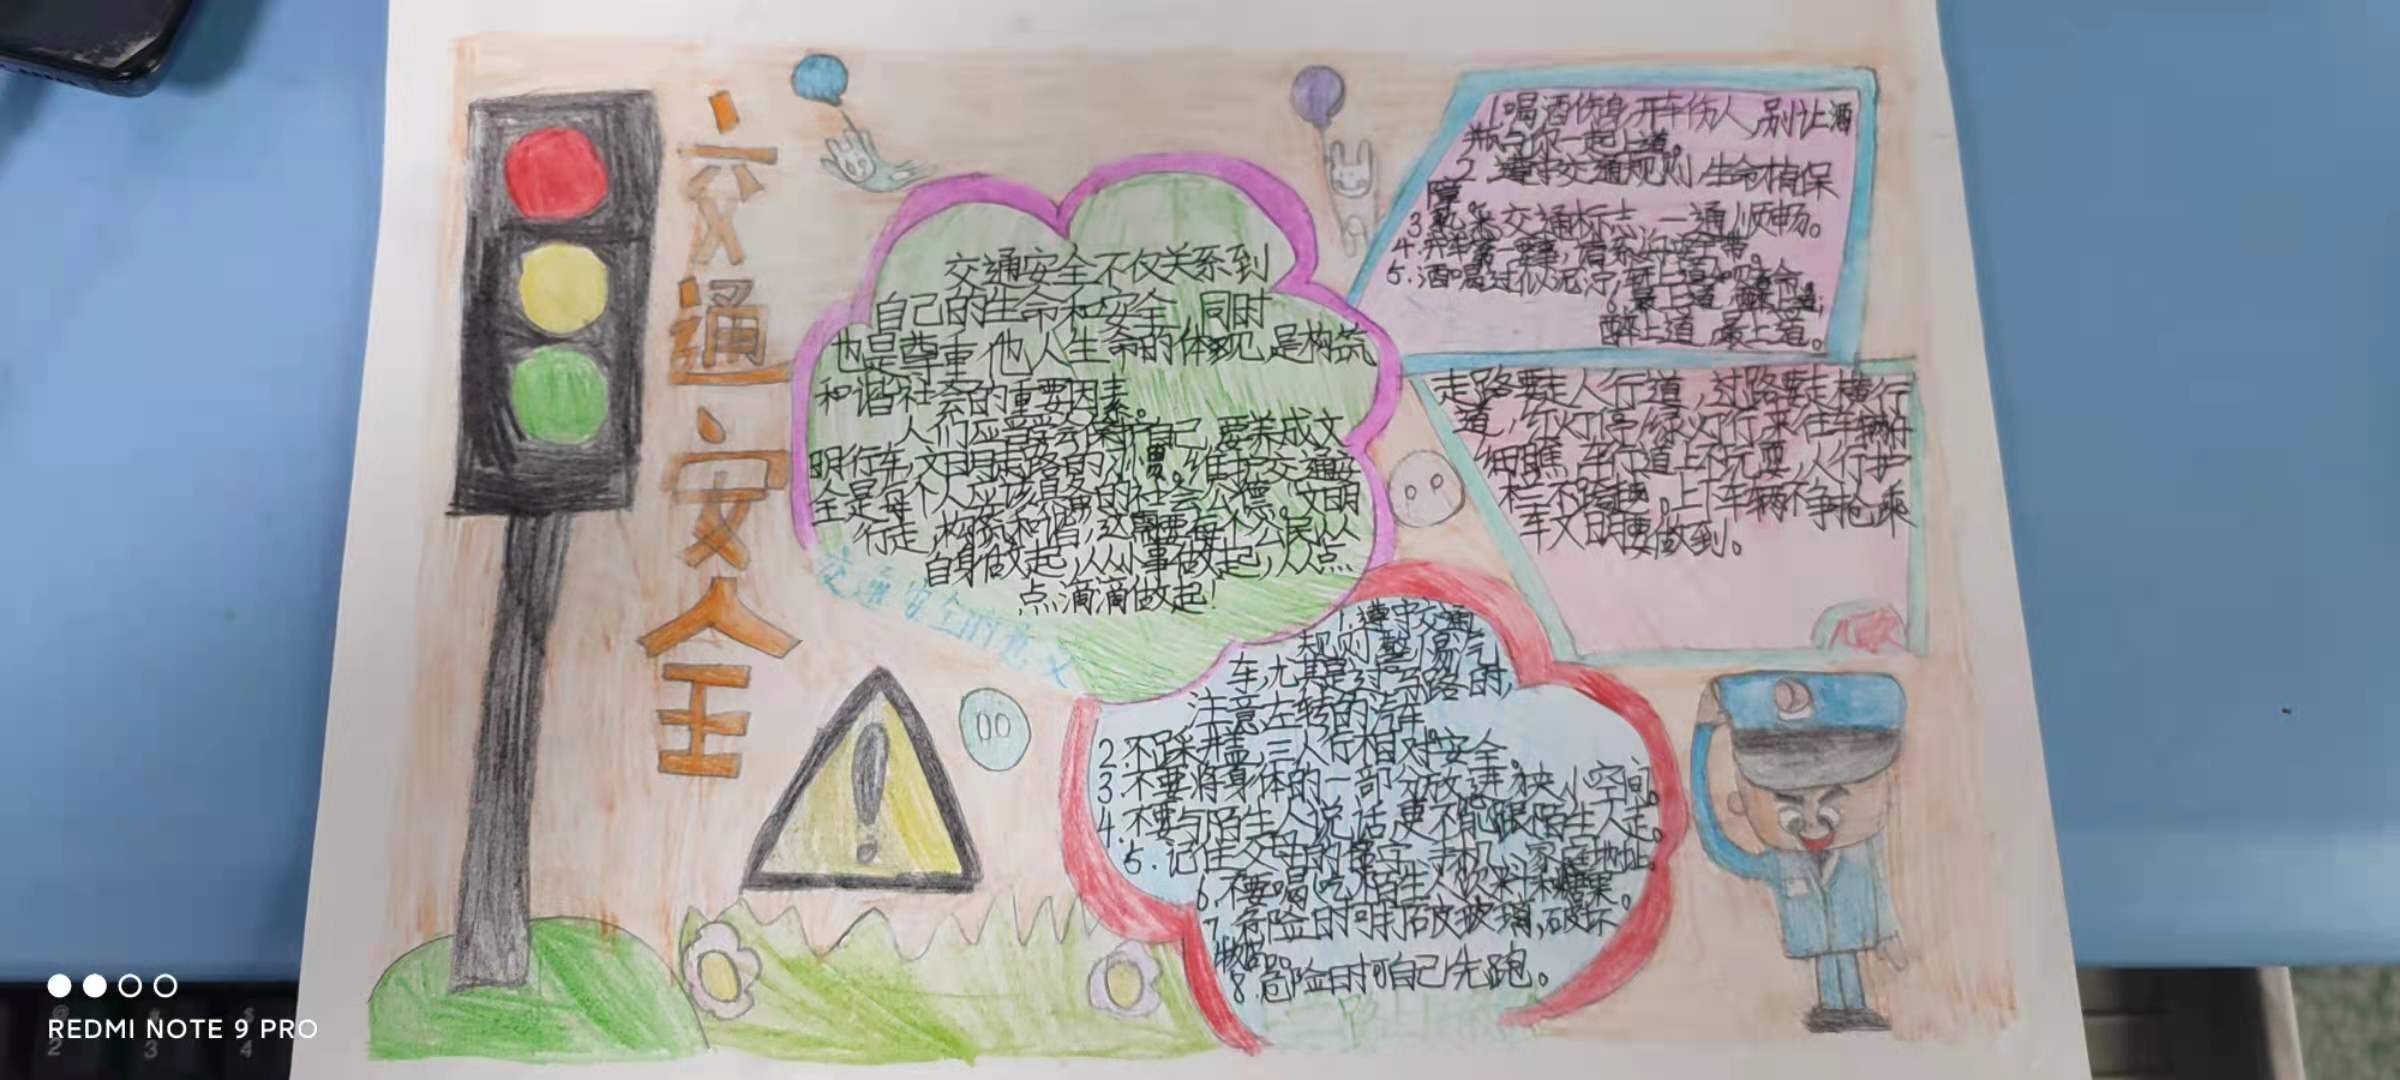 交通安全
交通安全不仅关系到
自己的生命和安全,同时
也是尊重他人生命的体现,是构筑
和谐社会的重要因素。
人们应当学会保护自己,要养成文
明行车,文明走路的习惯。维护交通安
全是每个人应该具备的社会公德。文明
行走,构筑和谐,这需要每个公民从
自身做起,从小事做起,从点
点滴滴做起!
交通安全的意义
1.喝酒伤身,开车伤人,别让酒
瓶与你一起上道。
2.遵守交通规则,生命有保
障。
交通标志,一通顺畅。
4.开车第一要事,请系好安全带。
5.酒喝过似泥泞,
醉上道,最上道。
走路要走人行道,过路要走横行
道,红灯停绿灯行,来往车辆仔
细瞧,车行道上不玩耍,人行护
栏不跨越。上下车辆不争抢,乘
车文明要做到。
1.遵守交通
规则,
车,尤其是过马路时,
注意左转的汽车
2.不踩井盖,三人行相对安全。
3.不要将身体的一部分放进狭小空间。
4.不要与陌生人说话,更不能跟陌生人走。
5.记住父母的名字、手机、家庭地址。
6.不要喝吃陌生人饮料和糖果。
7.危险时可打破玻璃,破坏
物品。
8.危险时可自己先跑。
REDMI NOTE 9 PRO